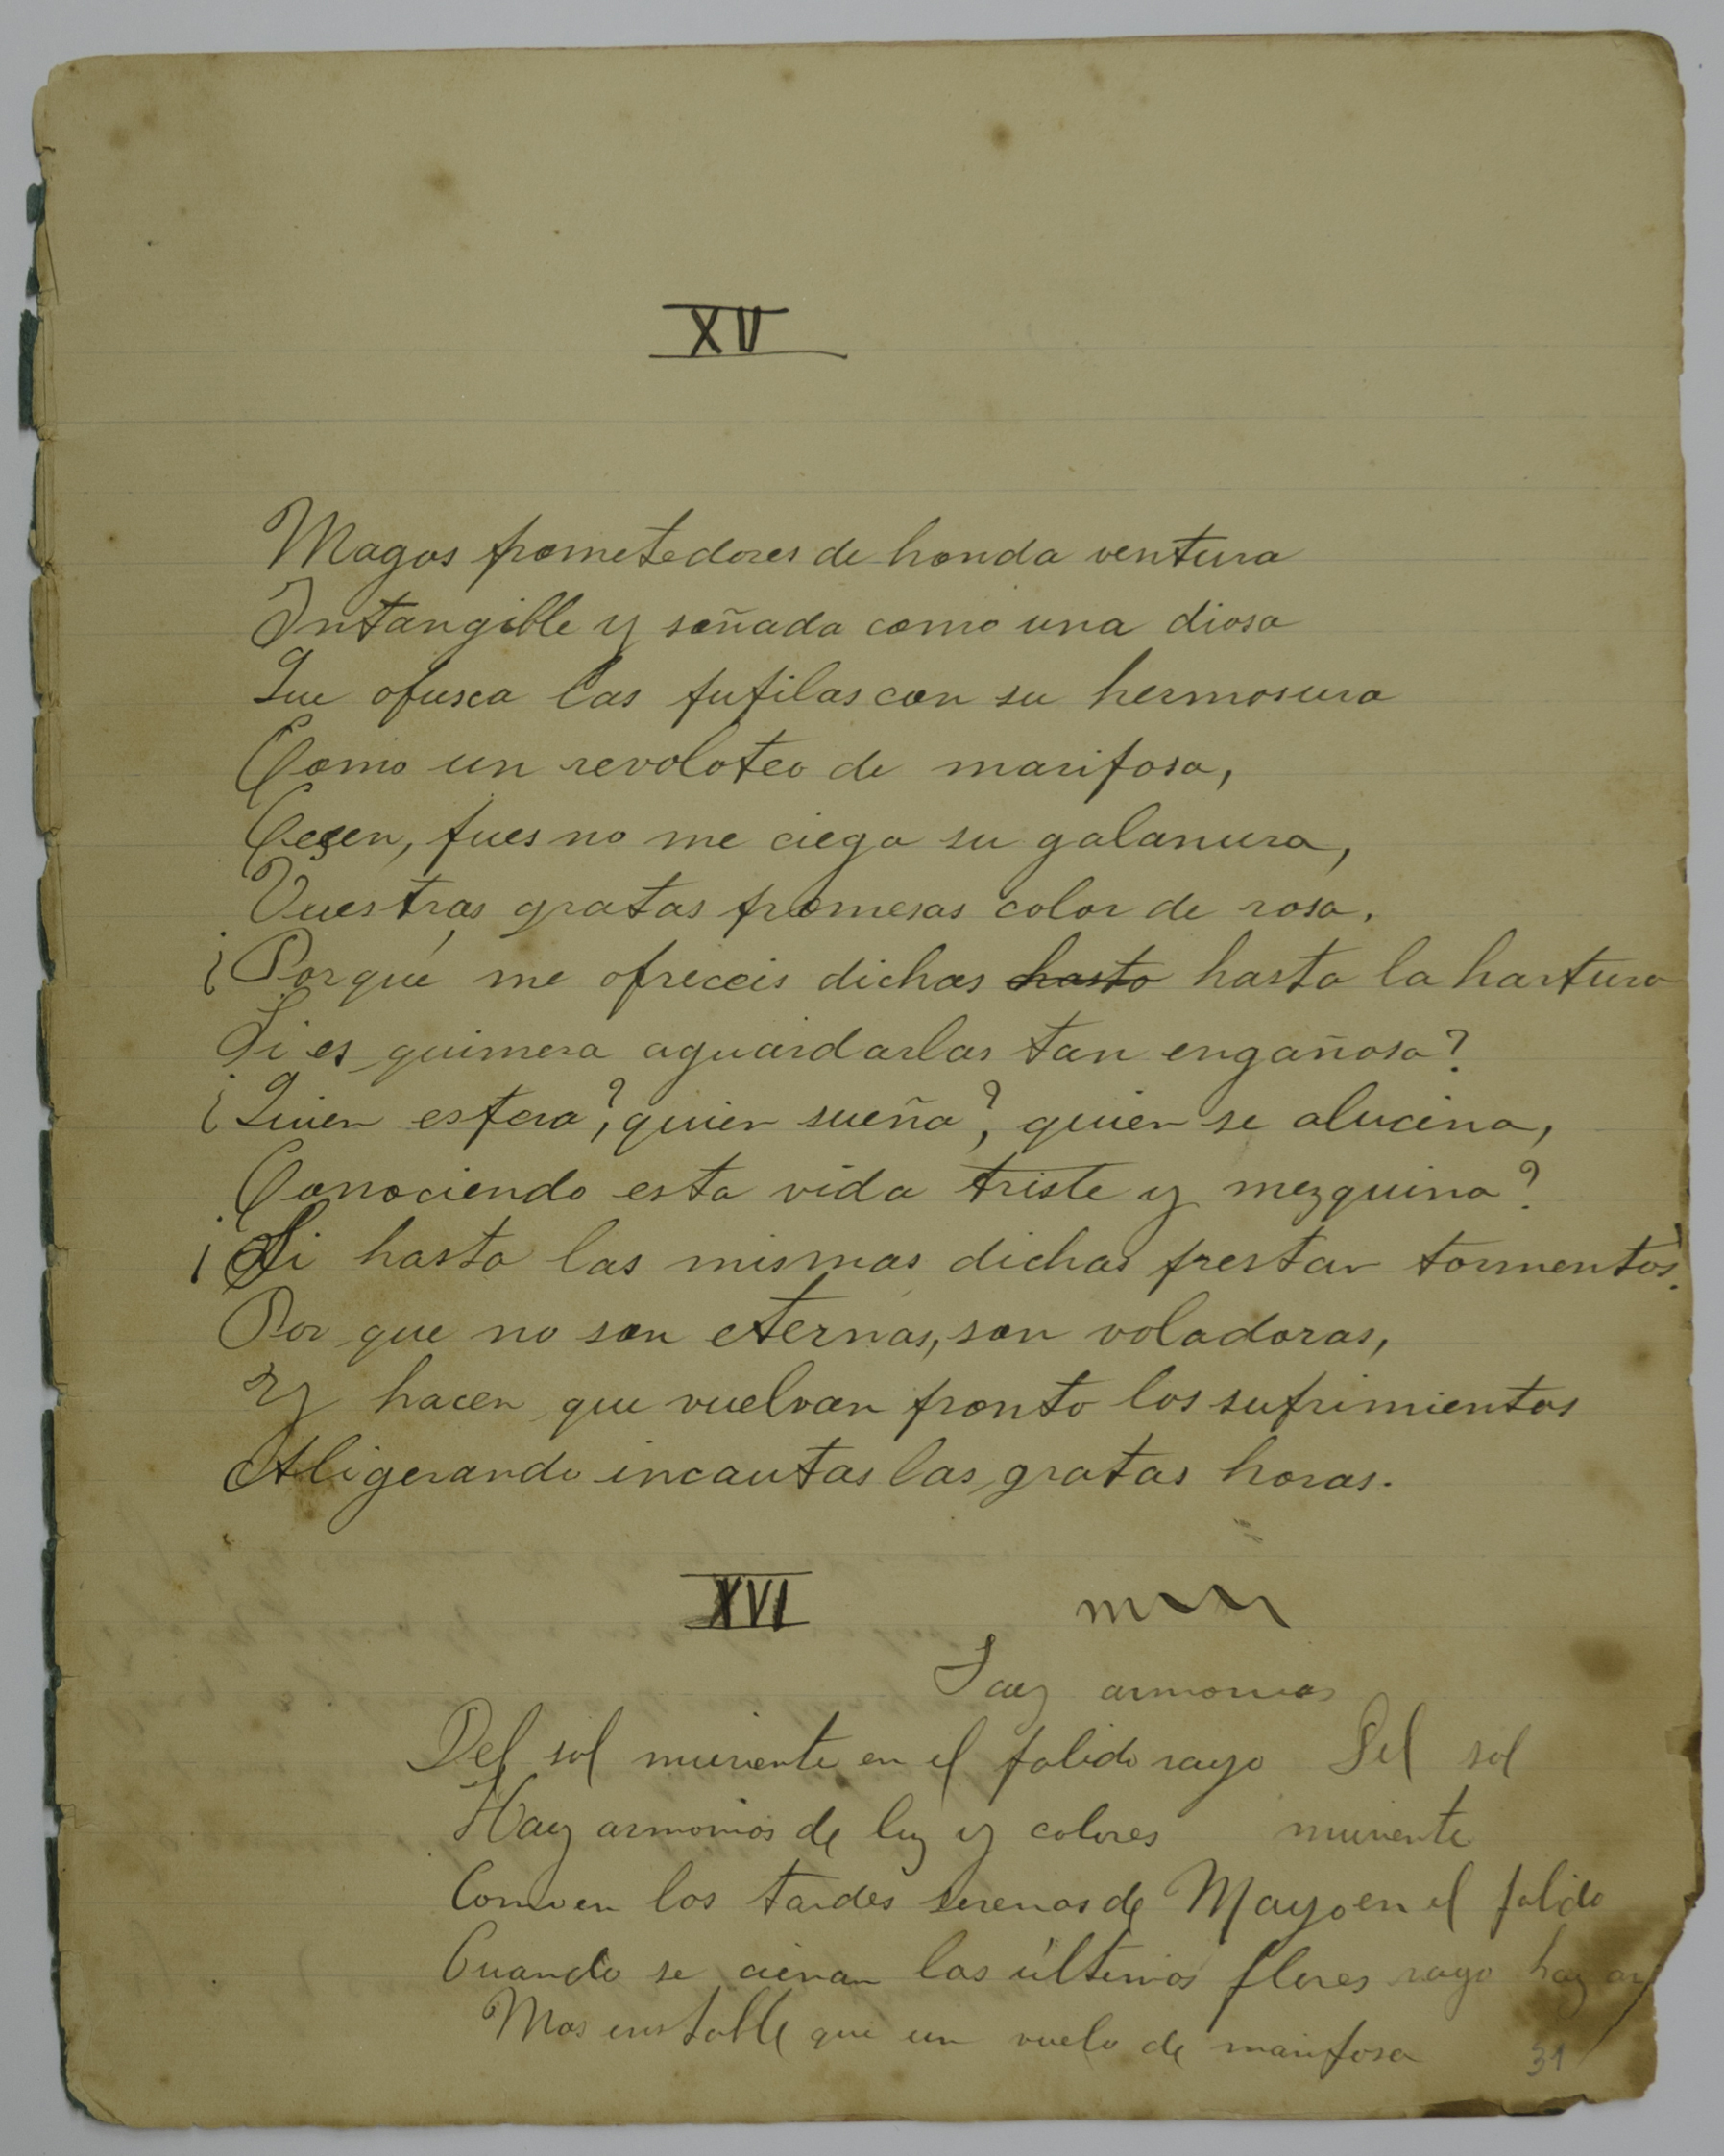 XV
Magos prometedores de honda ventura
Intangible y soñada como una diosa
Que ofusca las pupilas con su hermosura
Como un revoloteo de mariposa,
Cesen, pues no me ciega su galanura,
Vuestras gratas promesas color de rosa.
¿Porqué me ofreceis dichas hasta hasta la hartura
Si es quimera aguardarlas tan engañosa?
¿Quien espera?, quien sueña?, quien se alucina,
Conociendo esta vida triste y mezquina?
¡Si hasta las mismas dichas prestan tormentos!
Por que no son eternas, son voladoras,
Y hacen que vuelvan pronto los sufrimientos
Aligerando incautas las gratas horas.
XVI
Hay armonias
Del sol muriente en el palido rayo Del sol
Hay armonias de luz y colores muriente
Como en las tardes serenas de Mayo en el palido
Cuando se cierran las últimas flores rayo hay ar
Mas instable que un vuelo de mariposa
31